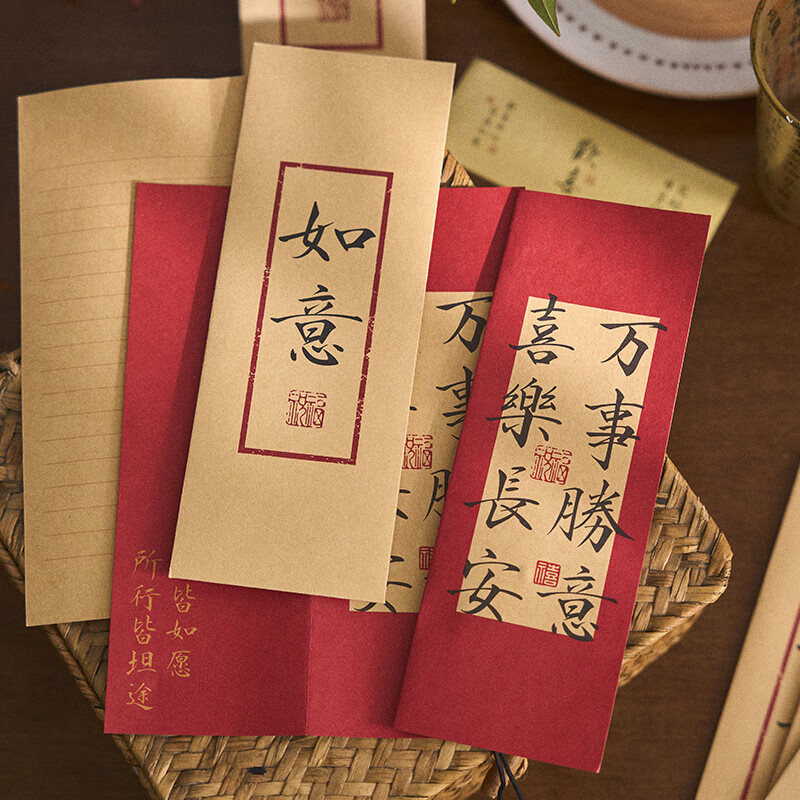 如意
万事勝意
喜樂長安
万事勝
皆如愿
所行皆坦途
歡
禧